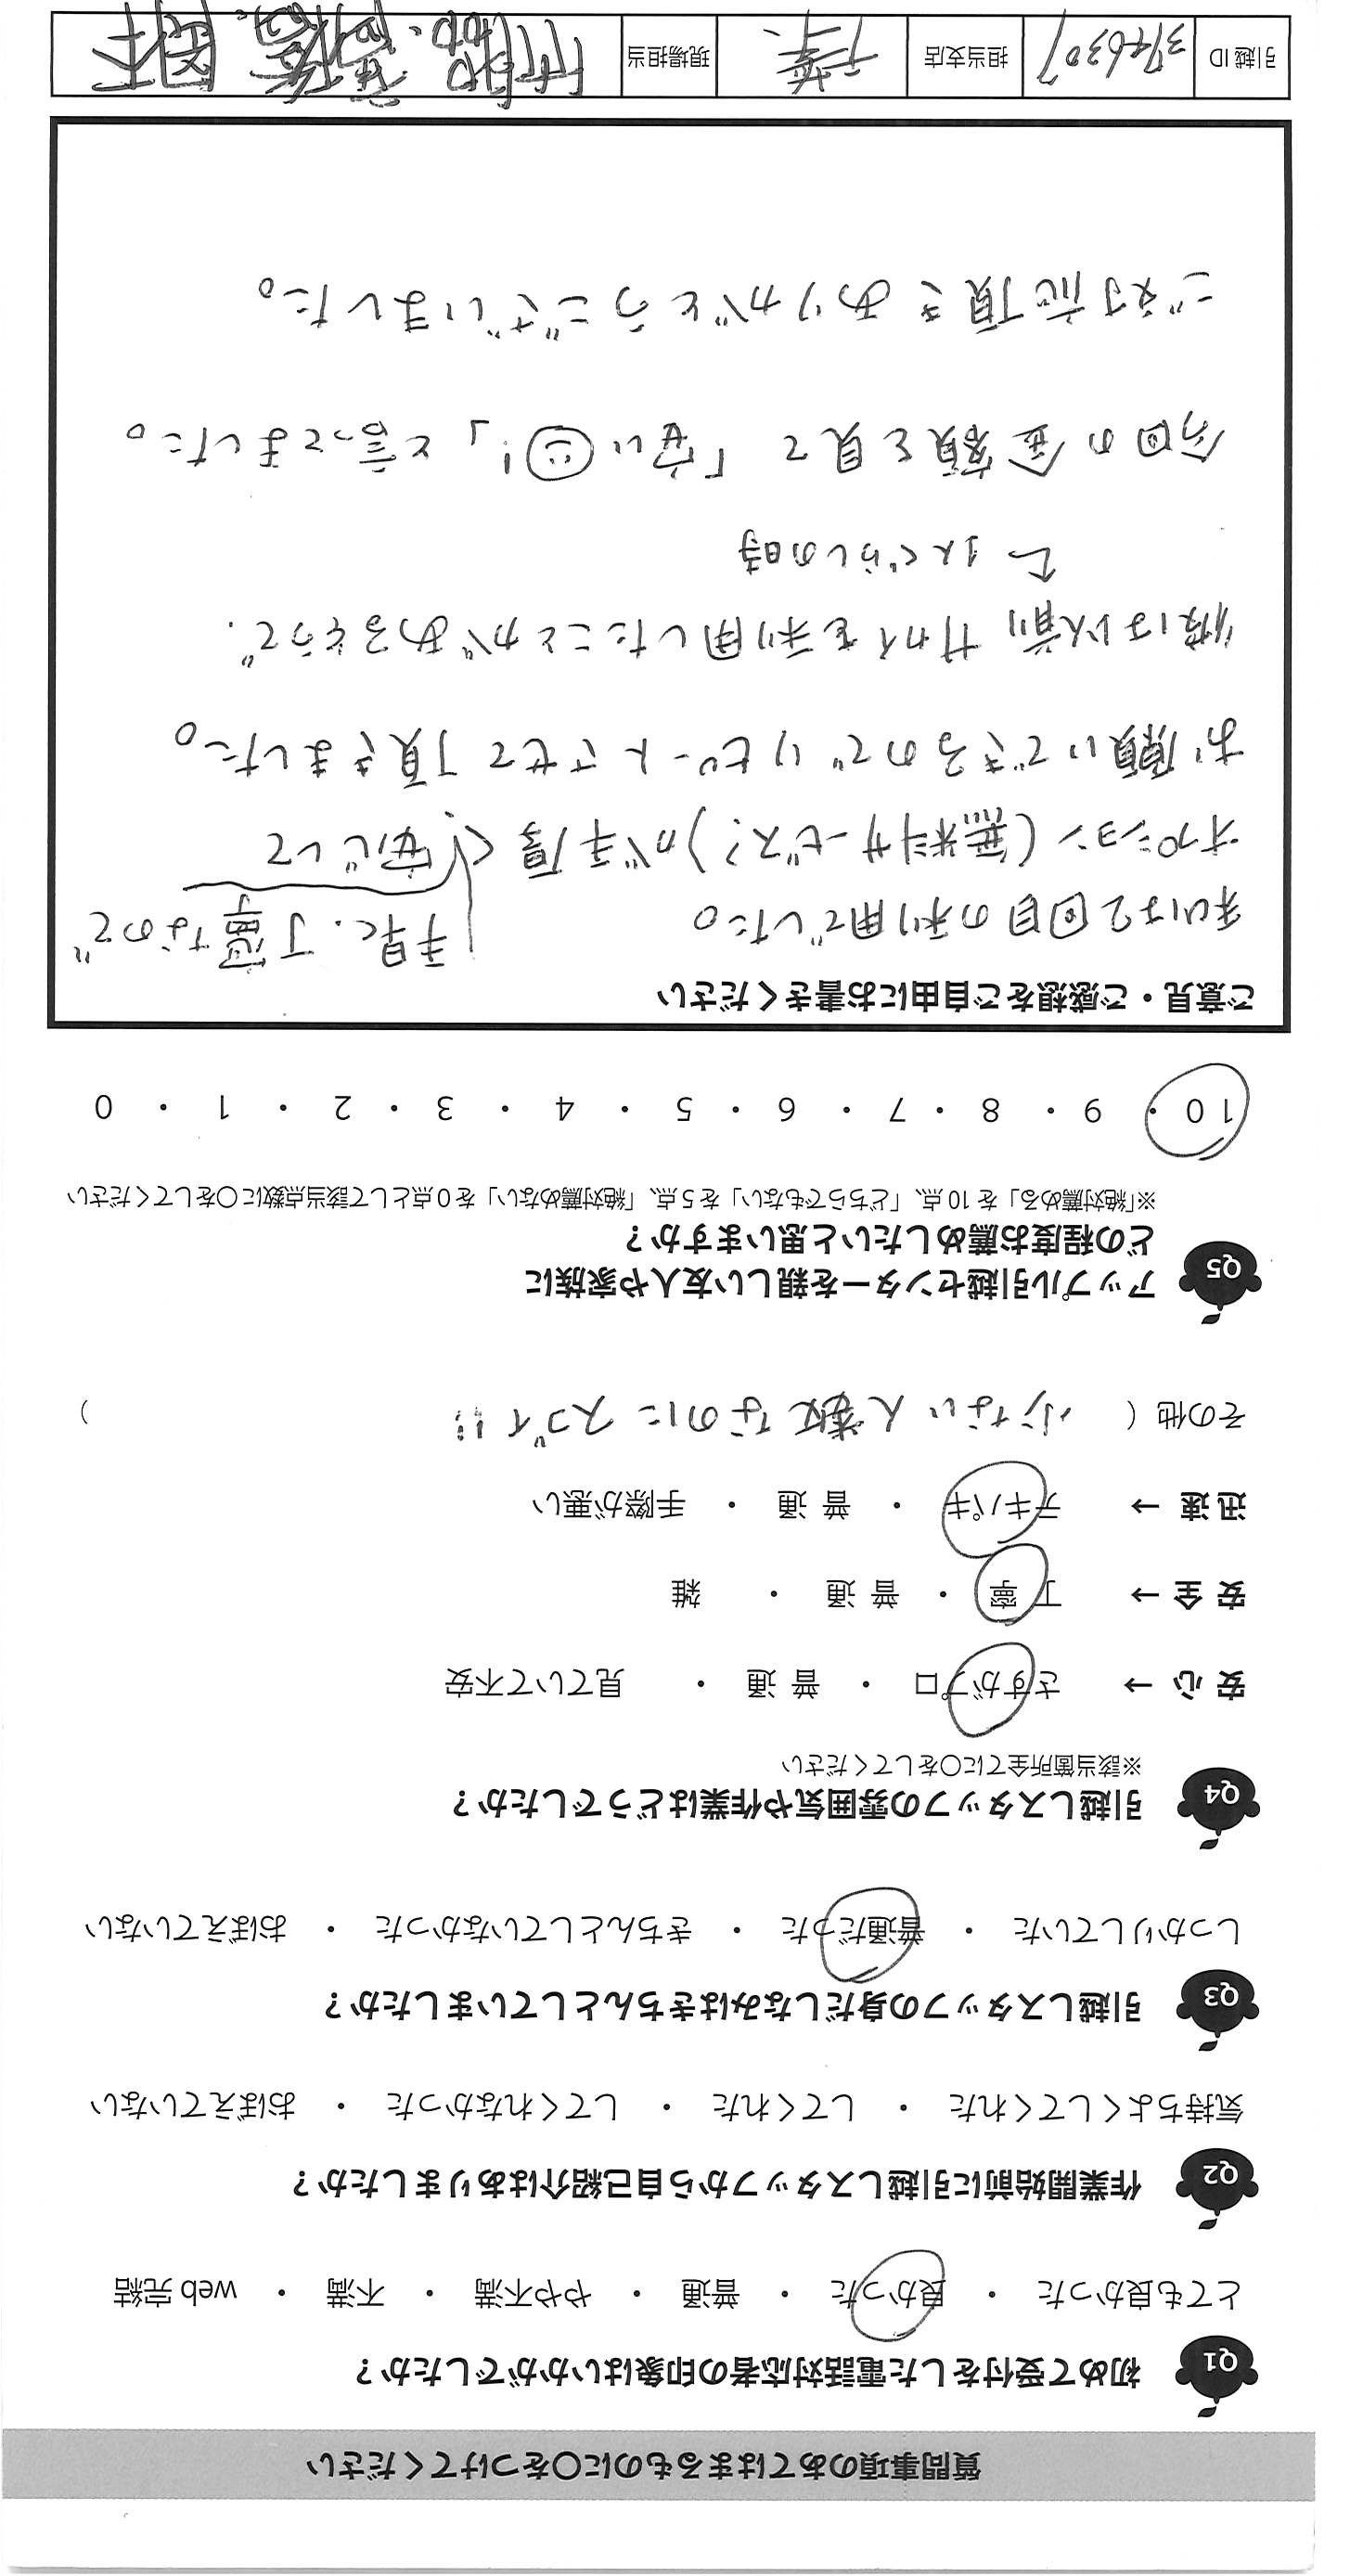 質問事項のあてはまるものに〇をつけてください
Q1 初めて受付をした電話対応者の印象はいかがでしたか？
とても良かった ・ 良かった ・ 普通 ・ やや不満 ・ 不満 ・ web 完結
Q2 作業開始前に引越しスタッフから自己紹介はありましたか？
気持ちよくしてくれた ・ してくれた ・ してくれなかった ・ おぼえていない
Q3 引越しスタッフの身だしなみはきちんとしていましたか？
しっかりしていた ・ 普通だった ・ きちんとしていなかった ・ おぼえていない
Q4 引越しスタッフの雰囲気や作業はどうでしたか？
※該当箇所全てに〇をしてください
安 心 → さすがプロ ・ 普 通 ・ 見ていて不安
安 全 → 丁 寧 ・ 普 通 ・ 雑
迅 速 → テキパキ ・ 普 通 ・ 手際が悪い
その他 （ 少ない人数なのにスゴイ!! ）
Q5 アップル引越センターを親しい友人や家族に
どの程度お薦めしたいと思いますか？
※「絶対薦める」を 10 点、「どちらでもない」を 5 点、「絶対薦めない」を 0 点として該当点数に〇をしてください
10 ・ 9 ・ 8 ・ 7 ・ 6 ・ 5 ・ 4 ・ 3 ・ 2 ・ 1 ・ 0
ご意見・ご感想をご自由にお書きください
私は2回目の利用でした。
手早く、丁寧なので
オプション(無料サービス?)が手厚く 安心して
お願いできるので リピートさせて頂きました。
彼は以前 サカイを利用したことがあるそうで、
1人ぐらしの時
今回の金額を見て 「安い!」 と言ってました。
ご対応頂き ありがとうございました。
引越 ID 3746307 担当支店 千葉 現場担当